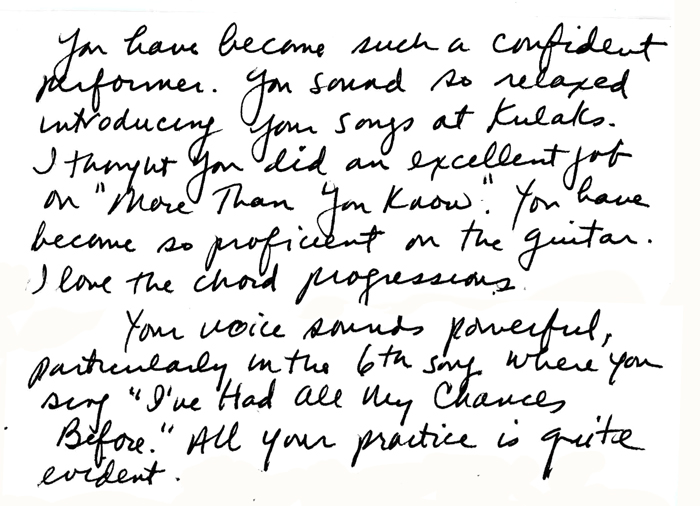 You have become such a confident
performer. You sound so relaxed
introducing your songs at Kulaks.
I thought you did an excellent job
on "More Than You Know". You have
become so proficient on the guitar.
I love the chord progressions.
Your voice sounds powerful,
particularly in the 6th song where you
sing "I've Had All My Chances
Before." All your practice is quite
evident.